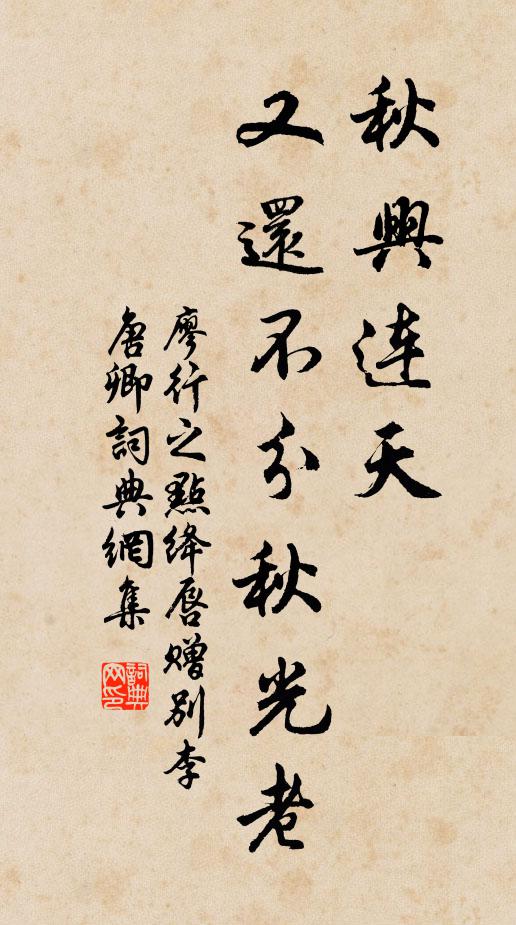 秋興连天
又還不分秋光老
廖行之點绛唇赠别李
唐卿詞典網集
詞典
网印